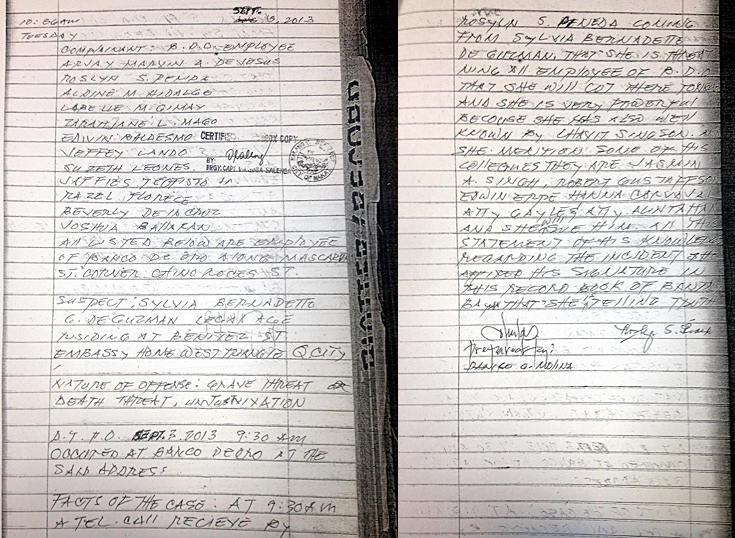 SEPT.
10:30AM 3, 2013
TUESDAY
COMPLAINANT: B.D.O. EMPLOYEE
ARVAY MARVIN A DE JESUS
ROSLYN S. PENEDA
ALDINE M HIDALGO
LABELLE M. GIMAY
TARAHJANE L. MAGO
EDWIN BALDESMO
CERTIFIED XEROX COPY
JOFFEY LANDO
BY:
SUZETH LEONES
BRGY. CAPT.
RAZEL FLORECE
BEVERLY DE LA CRUZ
JOSHUA BALLARAN
All LISTED BELOW ARE EMPLOYEE
OF BANCO DE ORO ALONG
ST. CORNER CHINO ROCES ST.
SUSPECT: SYLVIA BERNADETTE
G. DE GUZMAN LEGAL AGE
RISIDING AT BENITEZ ST
EMBASSY HOME WEST TRIANGLE Q.CITY
NATURE OF OFFENSE: GRAVE THREAT OR
DEATH THREAT, UNJUST VIXATION
D.T.P.O. SEPT. 3 2013 9:30 AM
OCCURED AT BANCO DE ORO AT THE
SAID ADDRESS
FACTS OF THE CASE: AT 9:30AM
A TEL. CALL RECIEVE BY
BLOTTER/RECORD
ROSYLN S. PENEDA COMING
FROM SYLVIA BERNADETTE
DE GUZMAN, THAT SHE IS THREAT
NING All EMPLOYEE OF B.D.O
THAT SHE WILL GOT THERE
AND SHE IS VERY POWERFUL
BECOUSE SHE HAS ALSO WELL
KNOWN BY CHAVIT SINGSON.
SHE MENTION SOME OF HIS
COLLEGUES THEY ARE JASMIN
A. SINGH, ROBERT GUSTAFFSON
EDWIN HANNA CARVAJAL
ATTY GAYLES ATTY
AND SHE GIVE HIM AN THE
STATEMENT OF HIS KNOWLEDGE
REGARDING THE INCIDENT
AFFIXED HIS SIGNATURE IN
THIS RECORD BOOK OF BANTAY
BAYAN THAT SHE TELLING TRUTH
Prepared by:
DANILO O. MOLINA